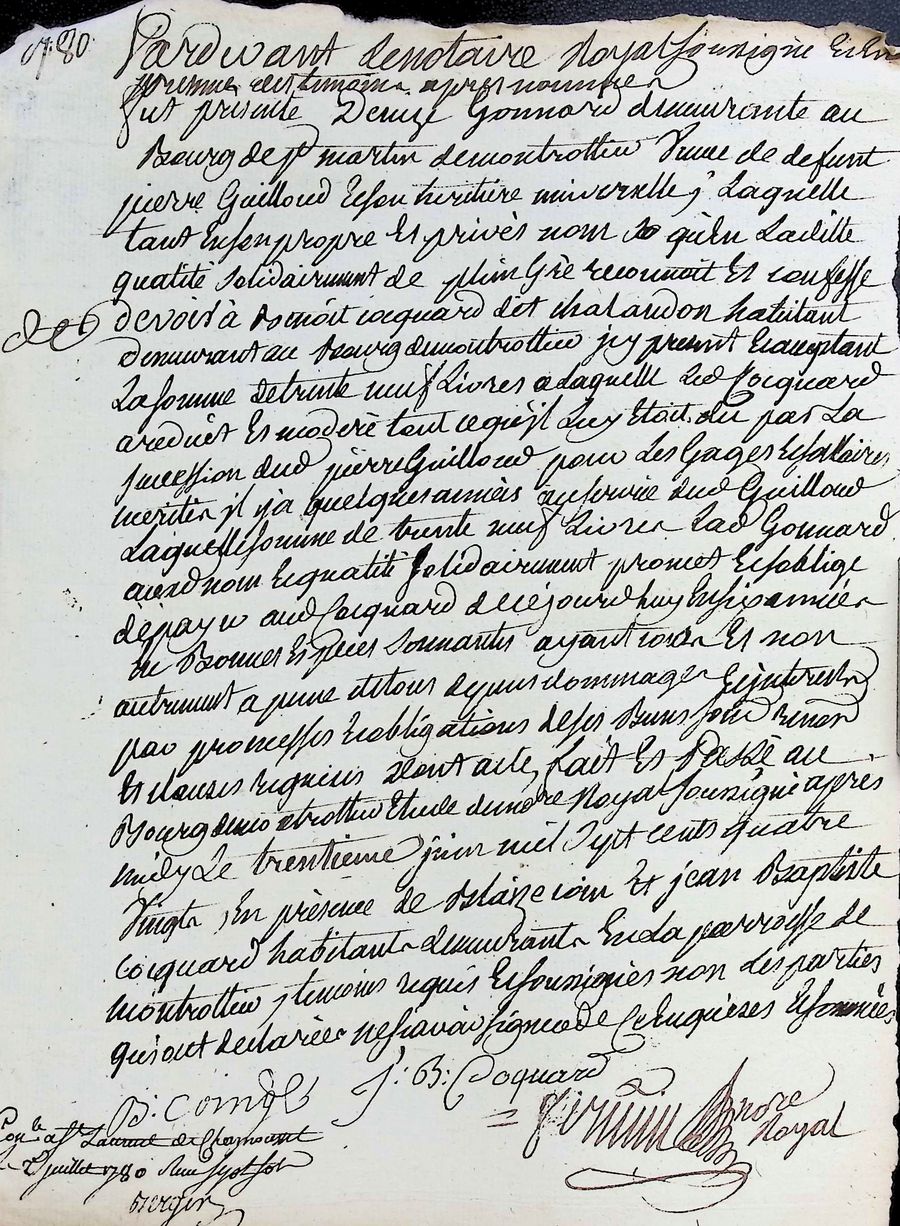 n°. 80.
Pardevant le notaire Royal soussigné Et En
presence des temoins apres nommes
fut presente Denize Gonnard demeurante au
Bourg de St martin de montrottier Veuve de defunt
pierre Guilloud Et son heritiere universelle, Laquelle
tant En son propre Et privès nom qu'En Ladille
qualité solidairement de plein Grè reconnoit Et confesse
devoir à Benoit cocquard dit chalandon habitant
demeurant au Bourg de montrottier jcy present Et acceptant
La somme de trente neuf Livres a Laquelle Led Cocquard
a reduit Et moderè tout ce qu'jl Luy Etoit du par La
succession dud pierre Guilloud pour Les Gages Et sallaires
merités jl y a quelques années au service dud Guilloud
Laquelle somme de trente neuf Livres Lad Gonnard
aud nom Et qualité solidairement promet Et s'oblige
de payer aud Cocquard de ce jourd'huy En six années
En Bonnes Espèces sonnantes ayant cours Et non
autrement a peine de tous depens dommages Et jnterests
par promesses Et obligations de ses Biens soud renon
Et clauses requises dont acte, fait Et Passè au
Bourg de montrottier Etude du nore Royal soussignè après
midy Le trentieme juin mil sept cents quatre
Vingt, En prèsence de Blaize coin Et jean Baptiste
Cocquard habitants demeurants En La parroisse de
montrottier, temoins requis Et soussignés non les parties
qui ont declarées ne sçavoir signer de ce Enquises Et sommées
B. Coindt J. B. Coquard
nore
Royal
Con.lé a St Laurent de Chamousset
Le 2 juillet 1780 Reçu sept sols